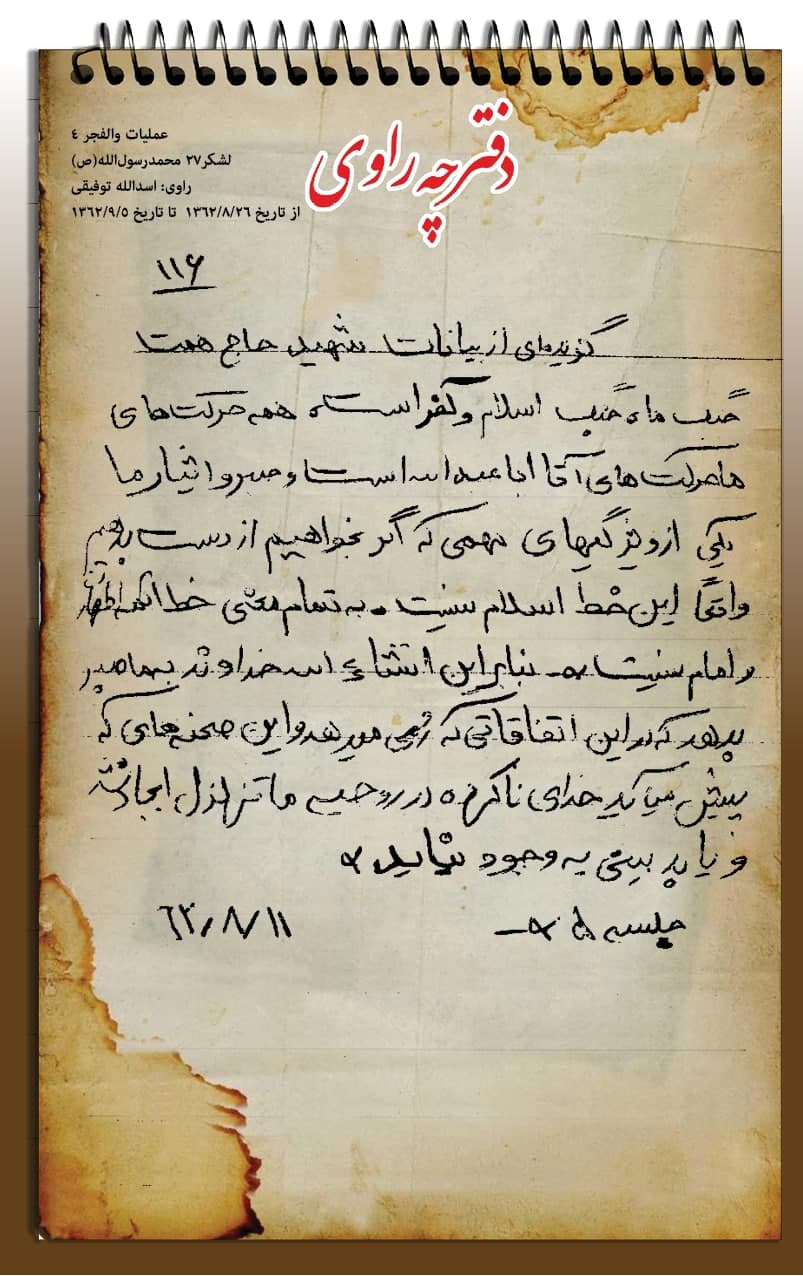 عملیات والفجر ٤
لشکر۲۷ محمدرسول‌الله(ص)
راوی: اسدالله توفیقی
از تاریخ ۱۳٦۲/۸/۲٦ تا تاریخ ۱۳٦۲/۹/۵
دفترچه راوی
۱۱۶
گزیده‌ای از بیانات شهید حاج همت
جنگ ما، جنگ اسلام و کفر است، همه حرکت‌های
ما حرکت‌های آقا اباعبدالله است و صبر و ایثار ما
یکی از ویژگیهای مهمی که اگر بخواهیم از دست بدهیم
واقعاً این خط اسلام نیست. به تمام معنی خط ائمه اطهار
و امام نیست. بنابراین انشاء الله خداوند به ما صبر
بدهد که در این اتفاقاتی که می‌دهد و این صحنه‌های که
پیش می‌آید خدای ناکرده در روحیه ما تزلزل ایجاد نشد
و یا بدبینی به وجود نیاید
جلسه ۵
۶۲/۸/۱۱